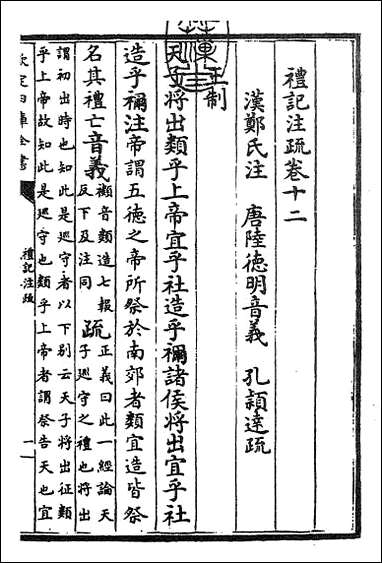 禮記注疏卷十二
漢鄭氏注 唐陸德明音義 孔穎達疏
王制
天子將出類乎上帝宜乎社造乎禰諸侯將出宜乎社
造乎禰注帝謂五德之帝所祭於南郊者類宜造皆祭
名其禮亡音義顙音類造七報反下及注同疏正義曰此一經論天子廵守之禮也將出
謂初出時也知此是廵守者以下别云天子將出征類
乎上帝故知此是廵守也類乎上帝者謂祭告天也宜
欽定四庫全書
禮記注疏
一